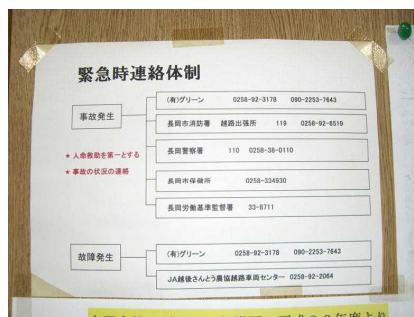 緊急時連絡体制
事故発生
(有)グリーン 0258-92-3178 090-2253-7643
長岡市消防署 越路出張所 119 0258-92-6519
長岡警察署 110 0258-38-0110
長岡市保健所 0258-334930
長岡労働基準監督署 33-8711
★ 人命救助を第一とする
★ 事故の状況の連絡
故障発生
(有)グリーン 0258-92-3178 090-2253-7643
JA越後さんとう農協越路車両センター 0258-92-2064